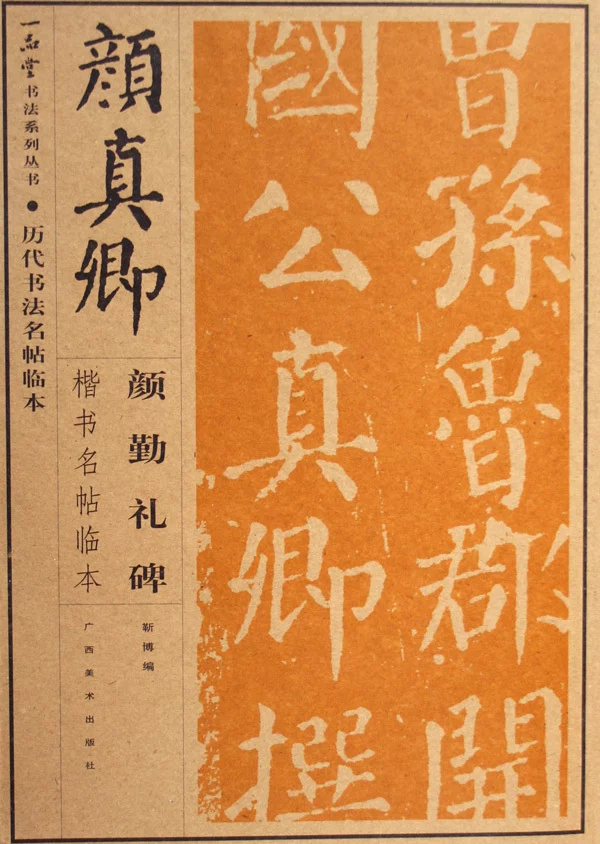 一品堂书法系列丛书●历代书法名帖临本
顔真卿
颜勤礼碑
楷书名帖临本
靳博编
广西美术出版社
曾孫魯郡開
國公真卿撰